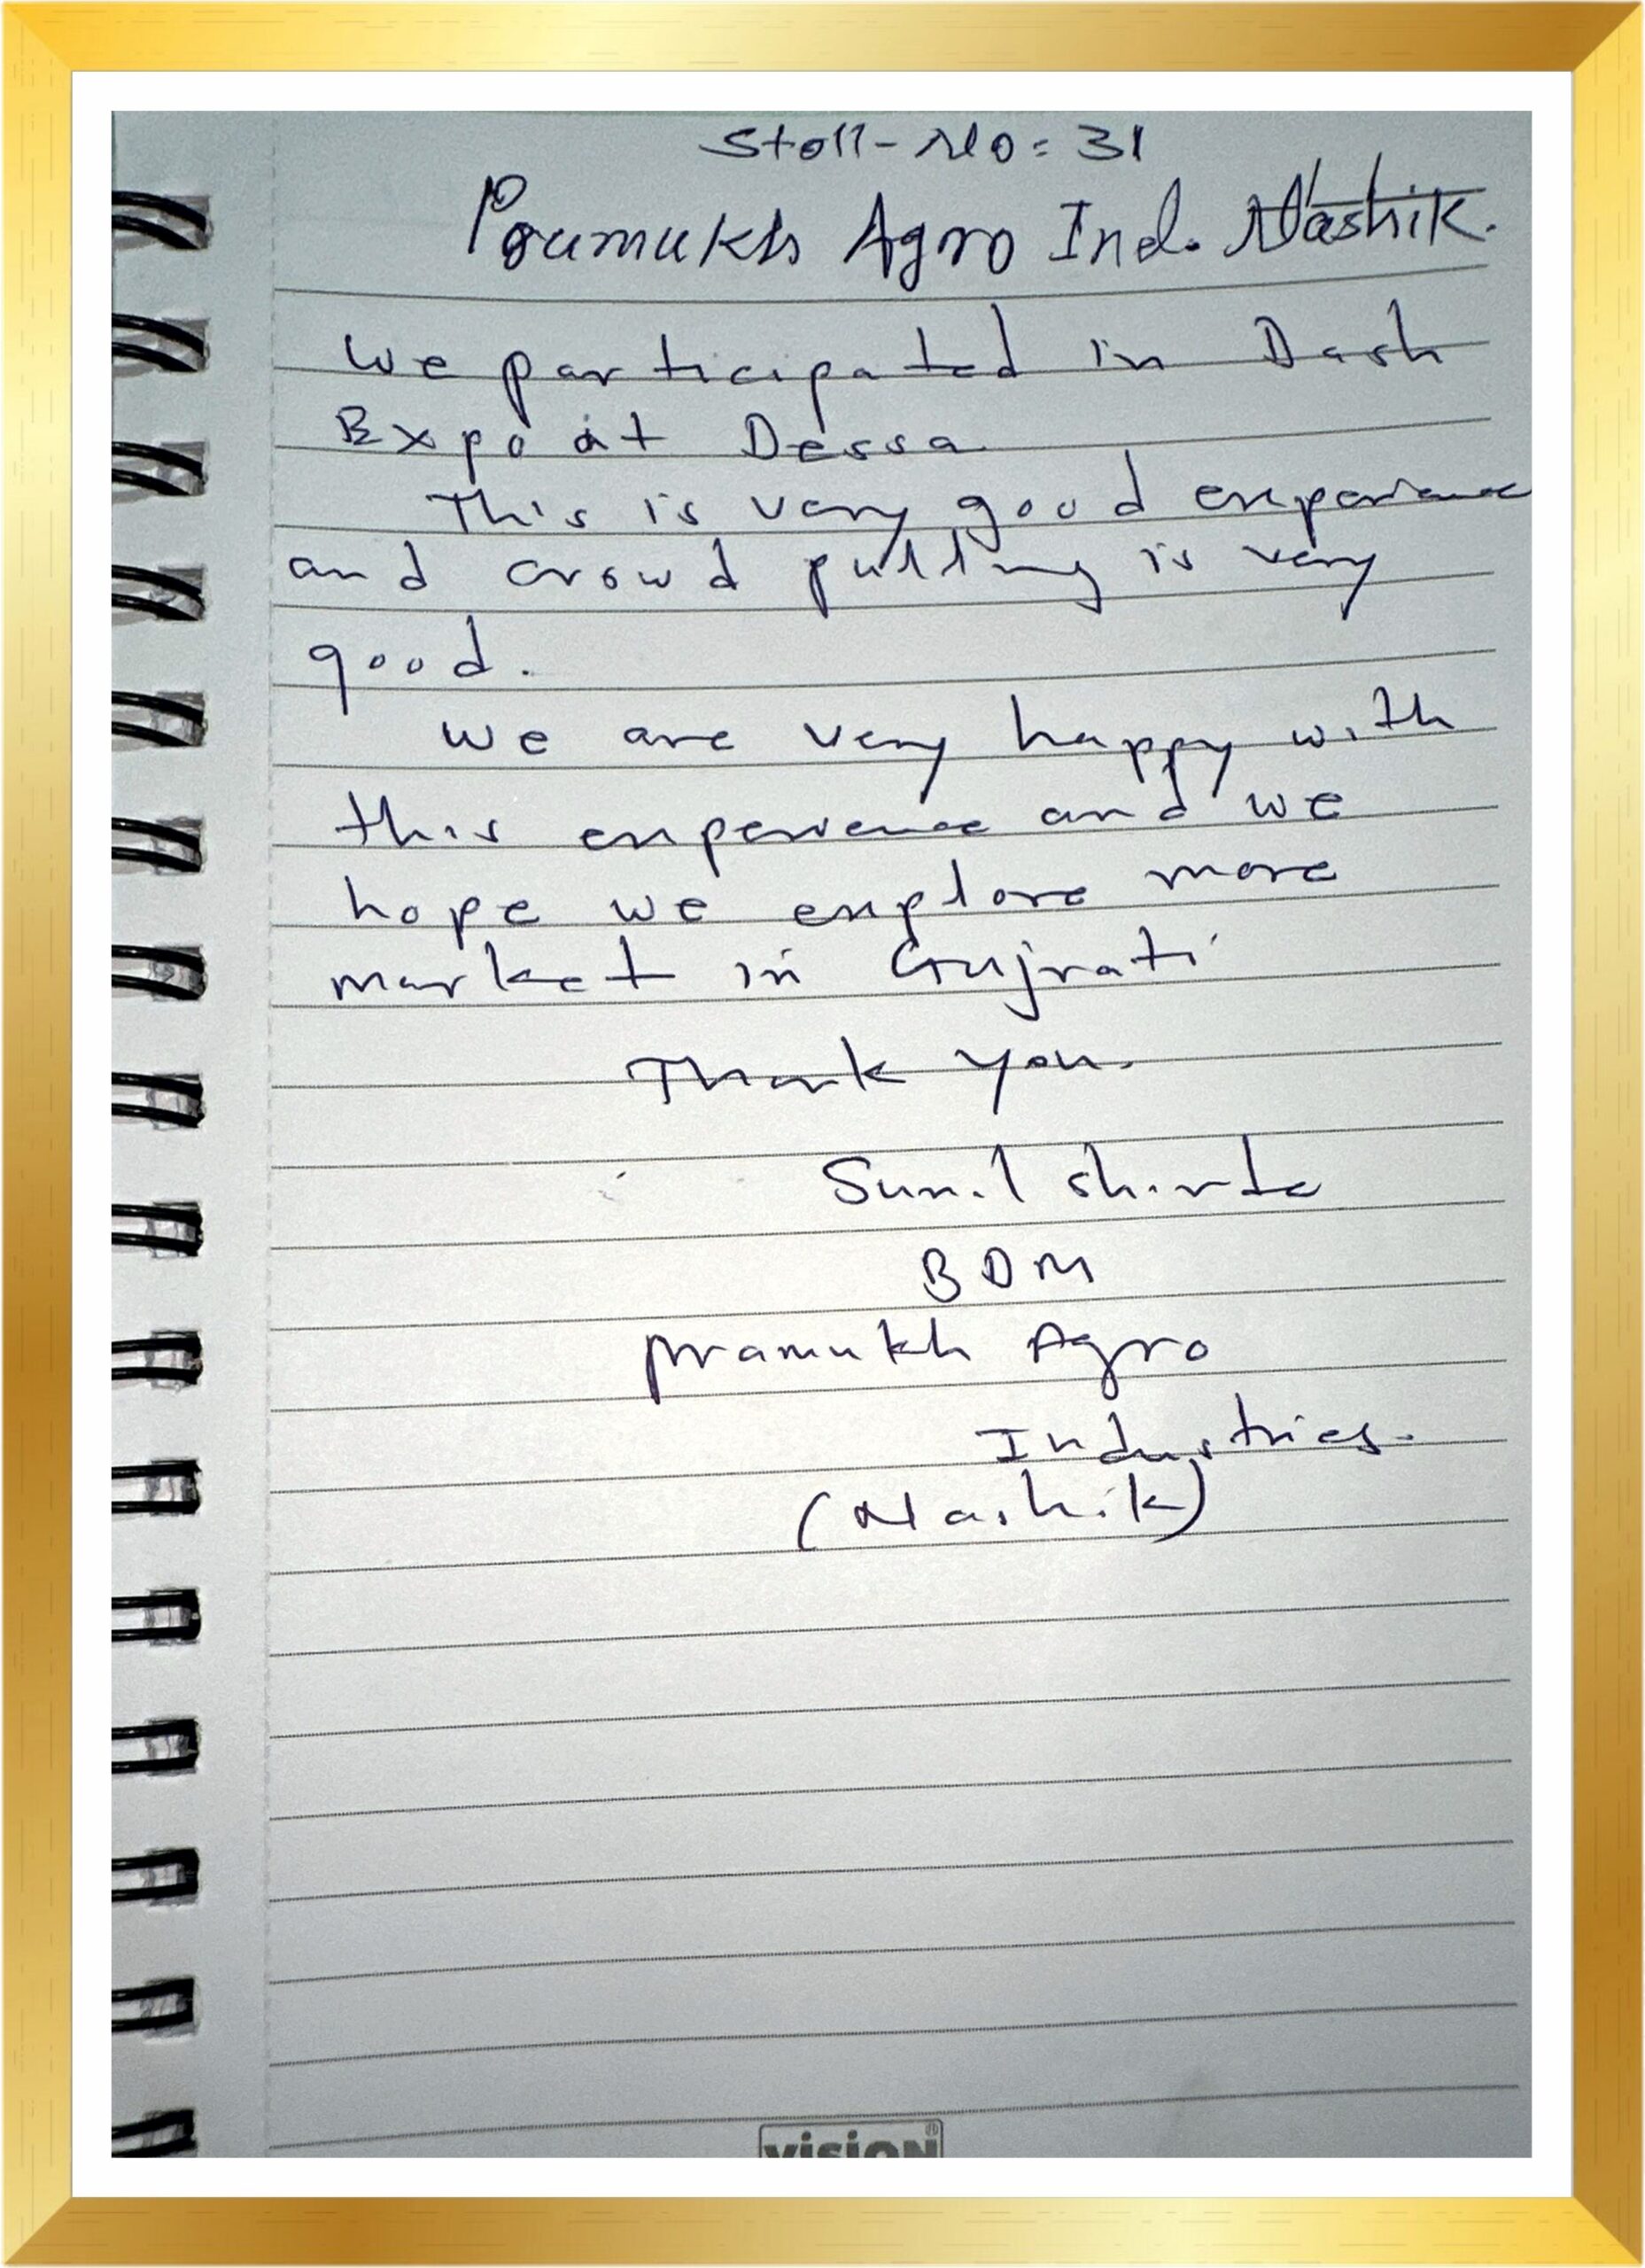 Stoll-No = 31
Pramukh Agro Ind. Nashik.
We participated in Dash
Expo at Dessa
This is very good experience
and crowd pulling is very
good.
We are very happy with
this experience and we
hope we explore more
market in Gujrati
Thank you.
Sunil
BDM
Pramukh Agro
Industries.
(Nashik)
vision